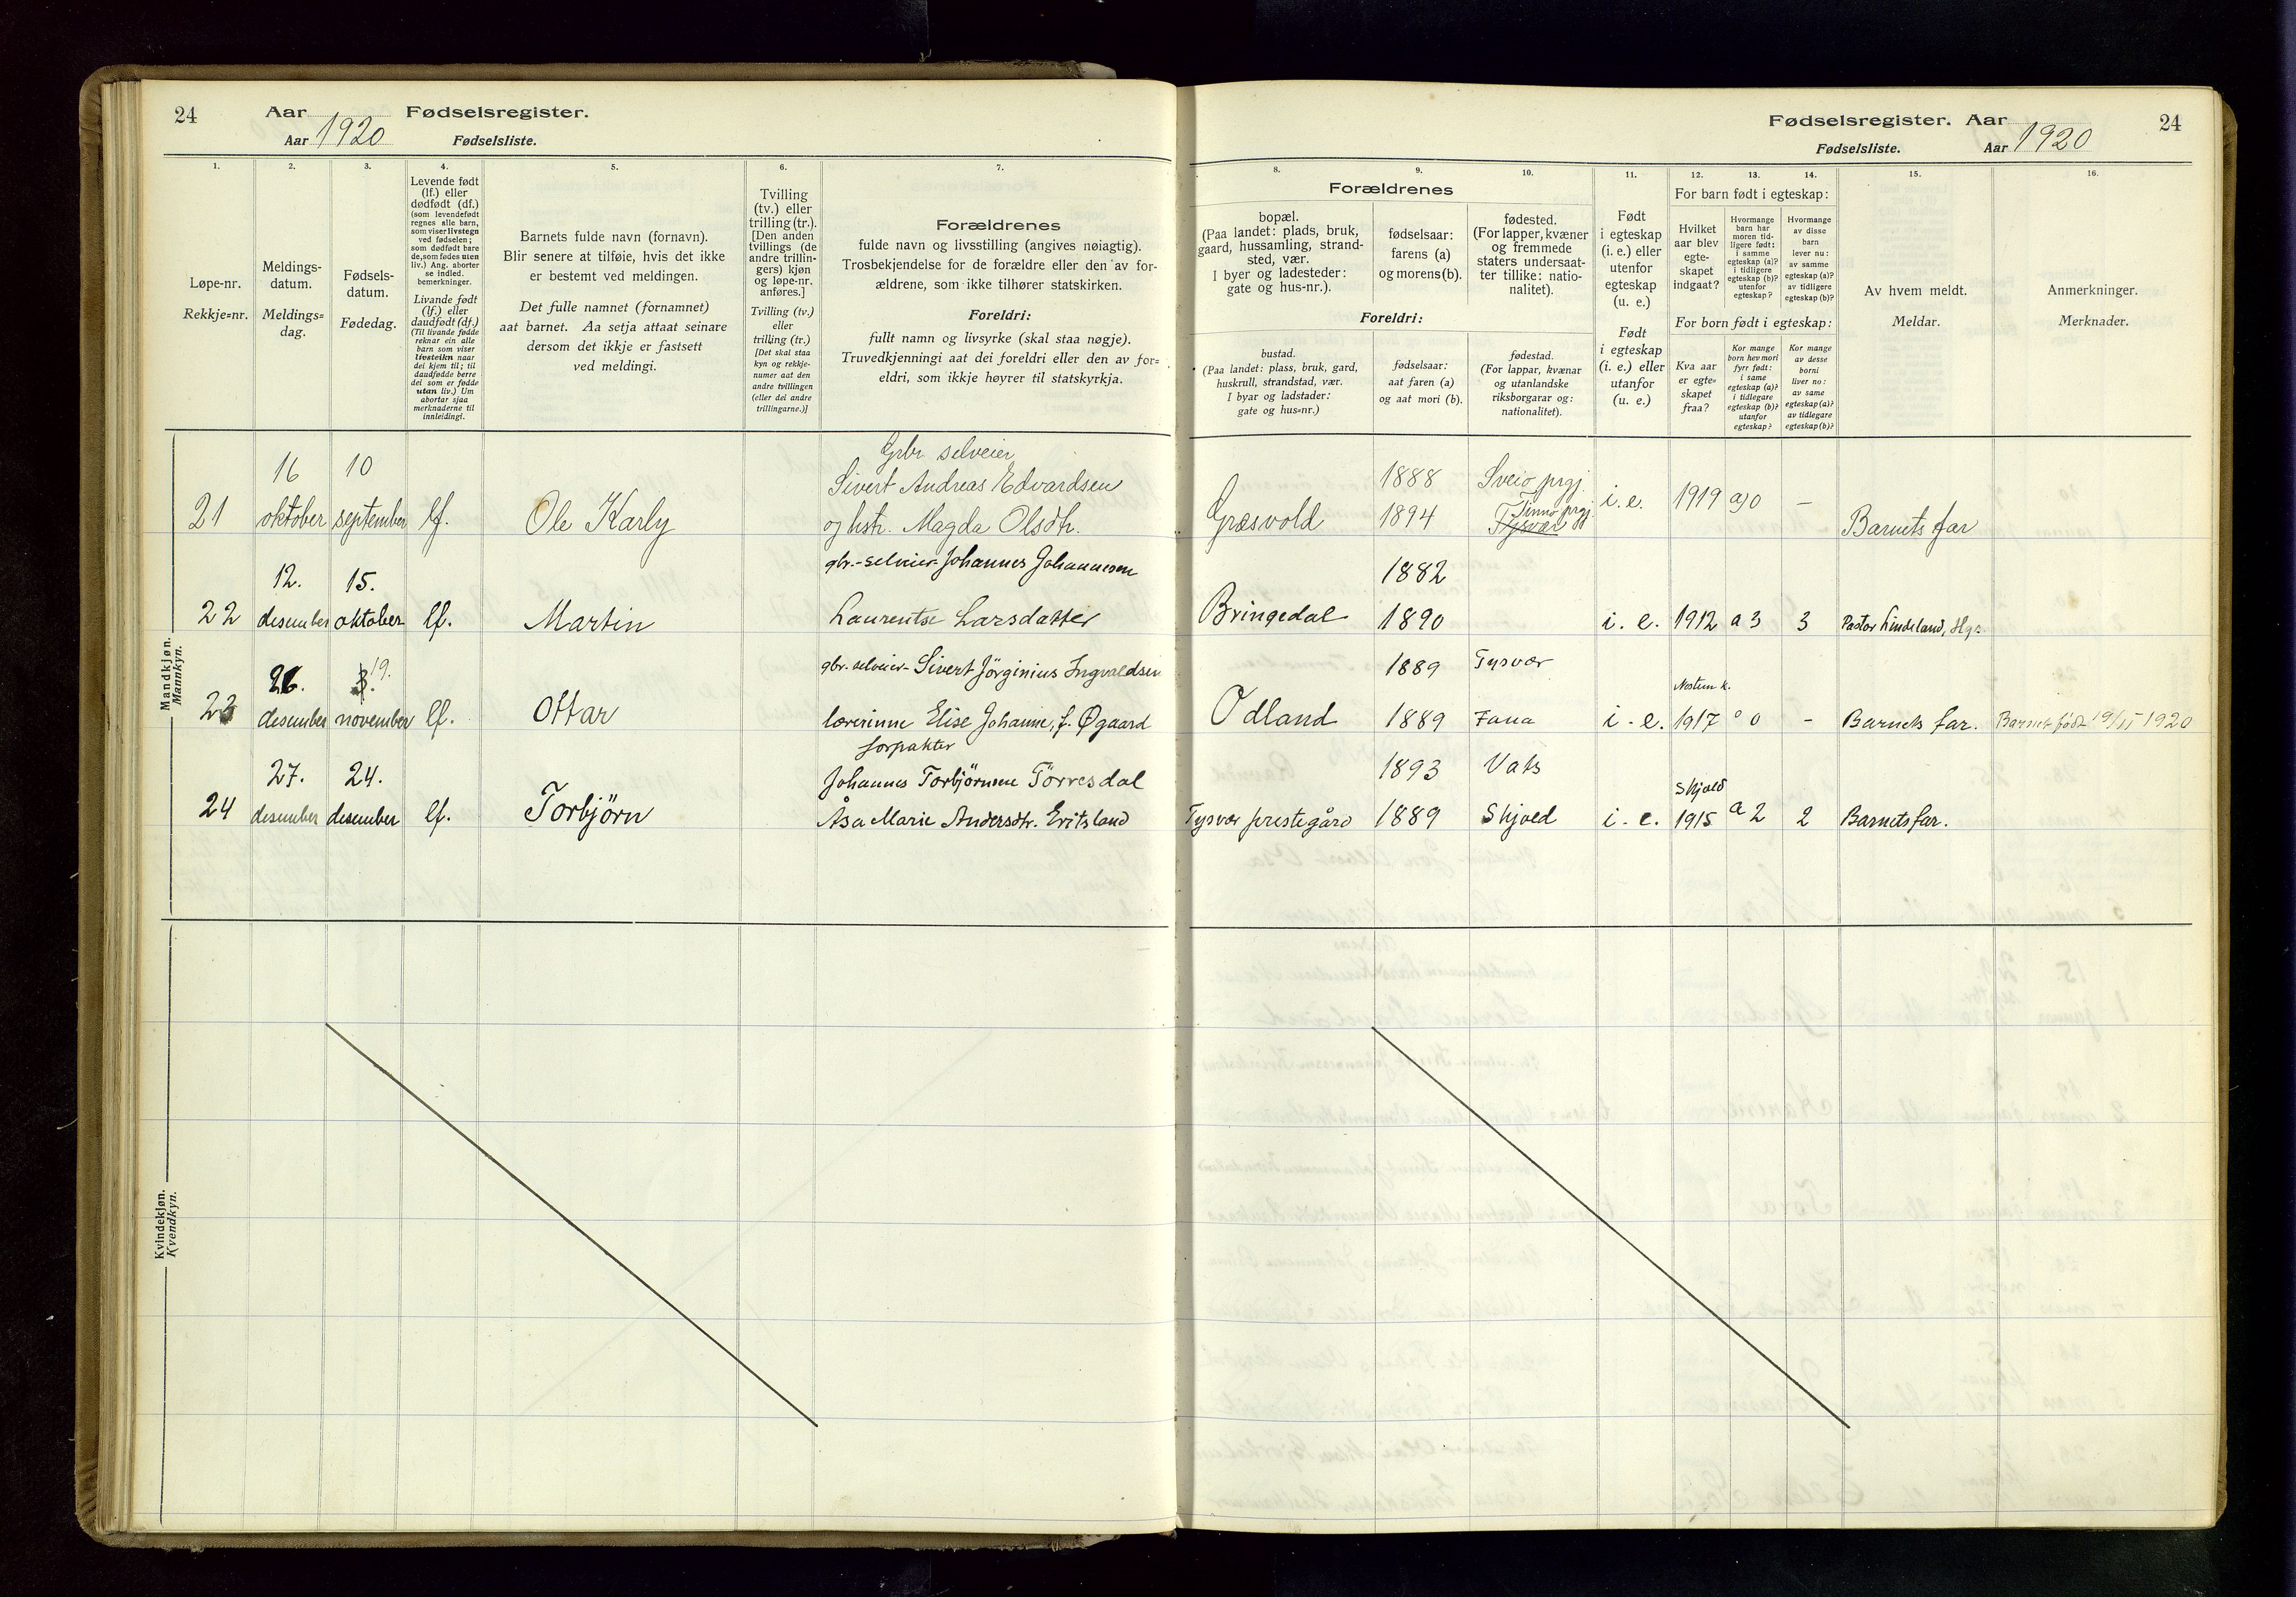 24 Aar Fødselsregister.
Aar 1920 Fødselsliste.
1. 2. 3. 4. 5. 6. 7.
Løpe-nr.
Rekkje=nr.
Meldings-
datum.
Meldings=
dag.
Fødsels-
datum.
Fødedag.
Levende født
(lf.) eller
dødfødt (df.)
(som levendefødt
regnes alle barn,
som viser livstegn
ved fødselen;
som dødfødt bare
de, som fødes uten
liv.) Ang. aborter
se indled.
bemerkninger.
Livande født
(lf.) eller
daudfødt (df.)
(Til livande fødde
reknar ein alle
barn som viser
livsteikn naar
dei kjem til; til
daudfødde berre
dei som er fødde
utan liv.) Um
abortar sjaa
merknaderne til
innleidingi.
Barnets fulde navn (fornavn).
Blir senere at tilføie, hvis det ikke
er bestemt ved meldingen.
Det fulle namnet (fornamnet)
aat barnet. Aa setja attaat seinare
dersom det ikkje er fastsett
ved meldingi.
Tvilling
(tv.) eller
trilling (tr.).
[Den anden
tvillings (de
andre trillin-
gers) kjøn
og løpe-nr.
anføres.]
Tvilling (tv.)
eller
trilling (tr.)
[Det skal staa
kyn og rekkje-
numer aat den
andre tvillingen
(eller dei andre
trillingarne.)]
Forældrenes
fulde navn og livsstilling (angives nøiagtig).
Trosbekjendelse for de forældre eller den av for-
ældrene, som ikke tilhører statskirken.
Foreldri:
fullt namn og livsyrke (skal staa nøgje).
Truvedkjenningi aat dei foreldri eller den av for=
eldri, som ikkje høyrer til statskyrkja.
Mandkjøn.
Mannkyn.
Grbr selveier
16 10 Sivert Andreas Edvardsen
21 oktober september lf. Ole Karly og hstr. Magda Olsdtr.
12. 15. gbr.-selveier Johannes Johannesen
22 desember oktober lf. Martin Laurentse Larsdatter
26. 3. 19. gbr. selveier Sivert Jörginius Ingvaldsen
23 desember november lf. Ottar lærerinne Elise Johanne, f. Øgaard
forpakter
27. 24. Johannes Torbjörnsen Törresdal
24 desember desember lf. Torbjörn Åsa Marie Andersdtr. Eritsland
Kvindekjøn.
Kvendkyn.
Fødselsregister. Aar 24
Fødselsliste. Aar 1920
8. 9. 10. 11. 12. 13. 14. 15. 16.
Forældrenes
bopæl.
(Paa landet: plads, bruk,
gaard, hussamling, strand-
sted, vær.
I byer og ladesteder:
gate og hus-nr.).
fødselsaar:
farens (a)
og morens (b).
fødested.
(For lapper, kvæner
og fremmede
staters undersaat-
ter tillike: natio-
nalitet).
Foreldri:
bustad.
(Paa landet: plass, bruk, gard,
huskrull, strandstad, vær.
I byar og ladstader:
gate og hus=nr.)
fødselsaar:
aat faren (a)
og aat mori (b).
fødestad.
(For lappar, kvænar
og utanlandske
riksborgarar og:
nationalitet).
Født
i egteskap
(i. e.) eller
utenfor
egteskap
(u. e.)
Født
i egteskap
(i. e.) eller
utanfor
(u. e.)
For barn født i egteskap:
Hvilket
aar blev
egte-
skapet
indgaat?
Hvormange
barn har
moren tid-
ligere født:
i samme
egteskap (a)?
i tidligere
egteskap (b)?
utenfor
egteskap?
Hvormange
av disse
barn
lever nu:
av samme
egteskap (a)?
av tidligere
egteskap (b)?
For born født i egteskap:
Kva aar
er egte=
skapet
fraa?
Kor mange
born hev mori
fyrr født:
i same
egteskap (a)?
i tidlegare
egteskap (b)?
utanfor
egteskap?
Kor mange
av desse
borni
liver no:
av same
egteskap (a)?
av tidlegare
egteskap (b)?
Av hvem meldt.
Meldar.
Anmerkninger.
Merknader.
1888 Sveio prgj.
Græsvold 1894 Tysvær prgj. i. e. 1919 a) 0 – Barnets far
1882
Bringedal 1890 i. e. 1912 a 3 3 Pastor Lindeland, Hgs.
1889 Tysvær
Odland 1889 Fana i. e. 1917 0 – Barnets far. Barnet født 19/11 1920
1893 Vats
Skjold
Tysvær prestegård 1889 Skjold i. e. 1915 a 2 2 Barnets far.